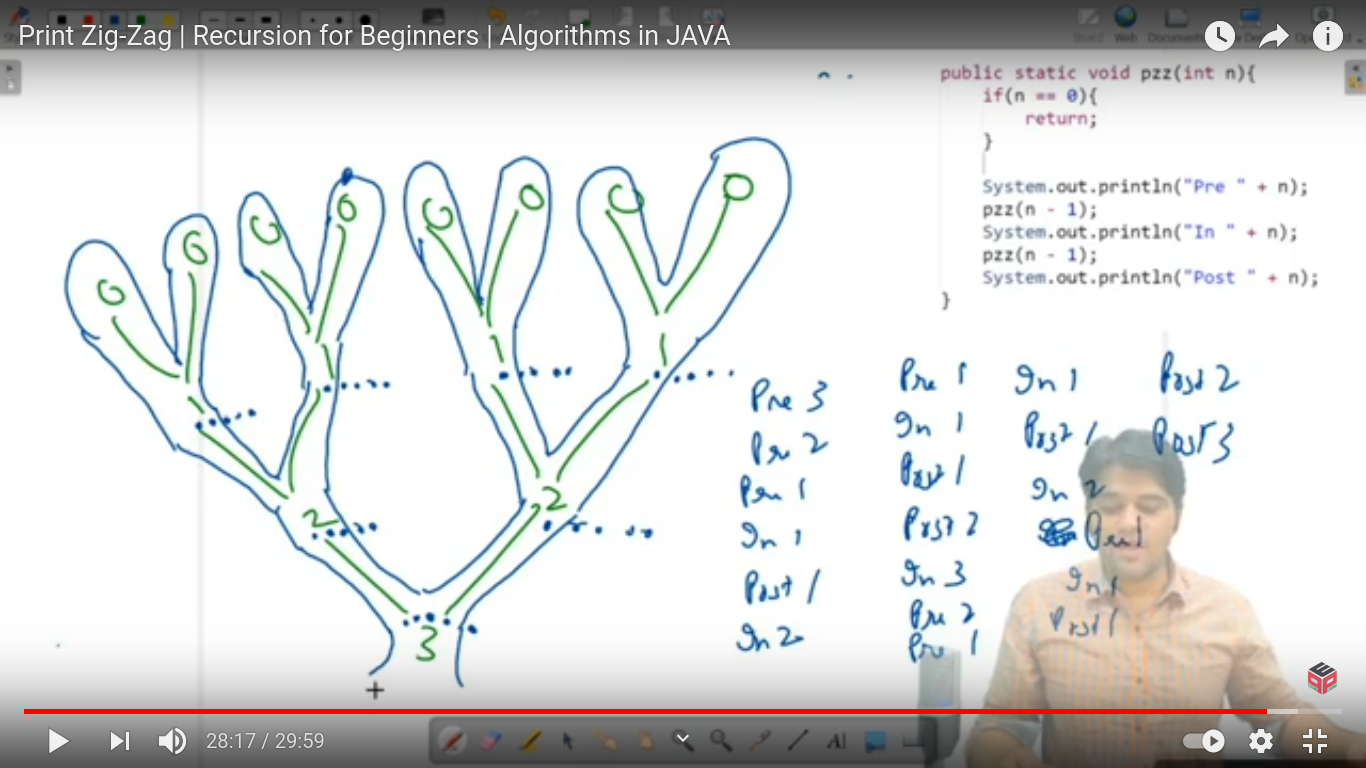 Print Zig-Zag | Recursion for Beginners | Algorithms in JAVA
public static void pzz(int n){
if(n == 0){
return;
}
System.out.println("Pre " + n);
pzz(n - 1);
System.out.println("In " + n);
pzz(n - 1);
System.out.println("Post " + n);
}
0 0 0 0 0 0 0 0
1 1 1 1
2 2
3
Pre 3
Pre 2
Pre 1
In 1
Post 1
In 2
Pre 1
In 1
Post 1
Post 2
In 3
Pre 2
Pre 1
In 1
Post 1
In 2
Pre 1
In 1
Post 1
Post 2
Post 3
28:17 / 29:59